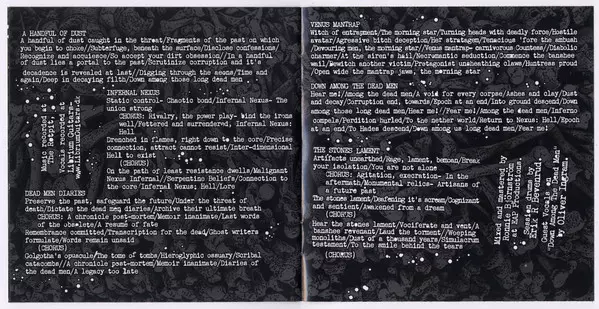 A HANDFUL OF DUST
A handful of dust caught in the threat/Fragments of the past on which
you begin to choke//Subterfuge, beneath the surface/Disclose confessions/
Recognize and acquiesce/So accept your dirt obsession//In a handful
of dust lies a portal to the past/Scrutinize corruption and it's
decadence is revealed at last//Digging through the aeons/Time and
again/Deep in decaying filth/Down among those long dead men
Music recorded at
The Respit,
Vocals recorded at
INFERNAL NEXUS
Static control- Chaotic bond/Infernal Nexus- The
union strong
CHORUS: Rivalry, the power play- mind the irons
well/Fettered and ensorcered, Infernal Nexus:
Hell
Drenched in flames, right down to the core/Precise
connection, attract cannot resist/Inter-dimensional
Hell to exist
(CHORUS)
On the path of least resistance dwells/Malignant
Nexus Infernal//Serpentine Beliefs/Connection to
the core/Infernal Nexus; Hell/Lore
DEAD MEN DIARIES
Preserve the past, safeguard the future/Under the threat of
death/Dictate the dead men diaries/Archive their ultimate breath
CHORUS: A chronicle post-mortem/Memoir inanimate/Last words
of the obsolete/A resume of fate
Remembrance committed/Transcription for the dead/Ghost writers
formulate/Words remain unsaid
(CHORUS)
Golgotha's opuscule/The tome of tombs/Hieroglyphic ossuary/Scribal
catacombs//A chronicle post-mortem/Memoir inanimate/Diaries of
the dead men/A legacy too late
VENUS MANTRAP
Witch of entrapment/The morning star/Turning heads with deadly force/Hostile
avatar/Agressive bitch deception/Her stratagem/Tenacious 'fore the ambush
/Devouring men, the morning star//Venus mantrap- carnivorous Countess/Diabolic
charmer/At the siren's hail/Necromantic seduction/Commence the banshee
wail/Bewitch another victim/Protagonist unsheathing claws/Huntress proud
/Open wide the mantrap jaws, the morning star
DOWN AMONG THE DEAD MEN
Hear me!/Among the dead men/A void for every corpse/Ashes and clay/Dust
and decay/Corruption end, towards/Epoch at an end/Into ground descend/Down
among those long dead men/Hear me!//Fear me!/Among the dead men/Inferno
compels/Perdition hurled/To the nether world/Return to Hell: Nexus/Epoch
at an end/To Hades descend/Down among us long dead men/Fear me!
THE STONES LAMENT
Artifacts unearthed/Rage, lament, bemoan/Break
your isolation/You are not alone
CHORUS: Agitation, execration- In the
aftermath/Monumental relics- Artisans of
a future past
The stone lament/Deafening it's scream/Cognizant
and sentient/Awakened from a dream
(CHORUS)
Hear the stones lament/Vociferate and vent/A
banshee revenant/Laud the torment//Weeping
monoliths/Dust of a thousand years/Simulacrum
testament/To the smile behind the tears
(CHORUS)
Mixed and mastered by
Session drums by
Guest vocals on
'Down Among The Dead Men'
by Oliver Ingram.